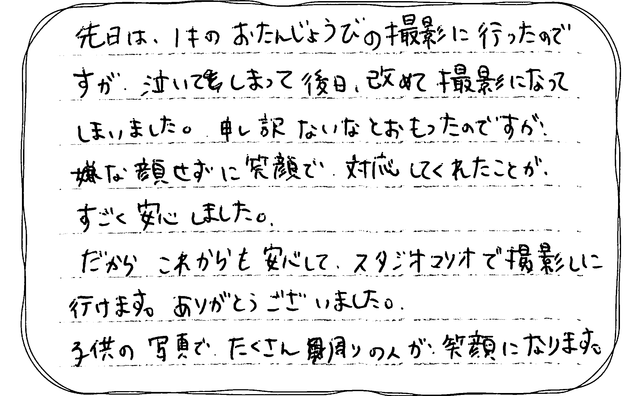 先日は、1才のおたんじょうびの撮影に行ったので
すが、泣いてしまって後日、改めて撮影になって
しまいました。申し訳ないなとおもったのですが、
嫌な顔せずに笑顔で、対応してくれたことが、
すごく安心しました。
だから これからも安心して、スタジオマリオで撮影しに
行けます。ありがとうございました。
子供の写真で、たくさん周りの人が、笑顔になります。